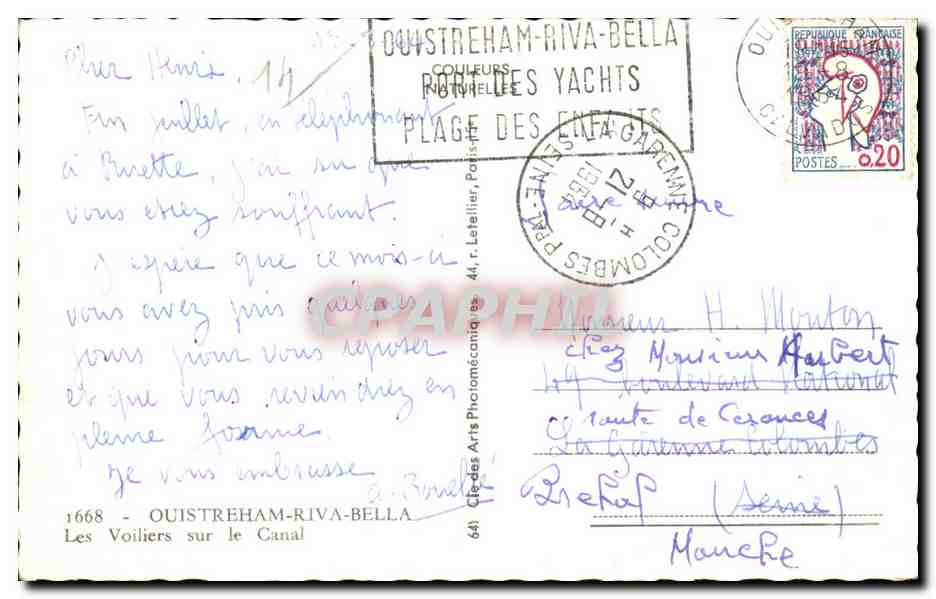 Cher Henri, 14
Fin Juillet, en téléphonant
à Binette, j'ai su que
vous étiez souffrant.
J'espère que ce mois-ci
vous avez pris quelques
jours pour vous reposer
et que vous reviendrez en
pleine forme.
Je vous embrasse
1668 - OUISTREHAM-RIVA-BELLA
Les Voiliers sur le Canal
COULEURS
NATURELLES
64) Cie des Arts Photomécaniques 44, r. Letellier, Paris-15e
OUISTREHAM-RIVA-BELLA
PORT DES YACHTS
PLAGE DES ENFANTS
LA GARENNE COLOMBES PPAL SEINE
21 H
-8
1964
REPUBLIQUE FRANÇAISE
POSTES 0,20
Faire suivre
Monsieur H Mouton
chez Monsieur Hubert
49 boulevard National
route de Cerences
La Garenne Colombes
Brehal (Seine)
Manche
CPAPHIL